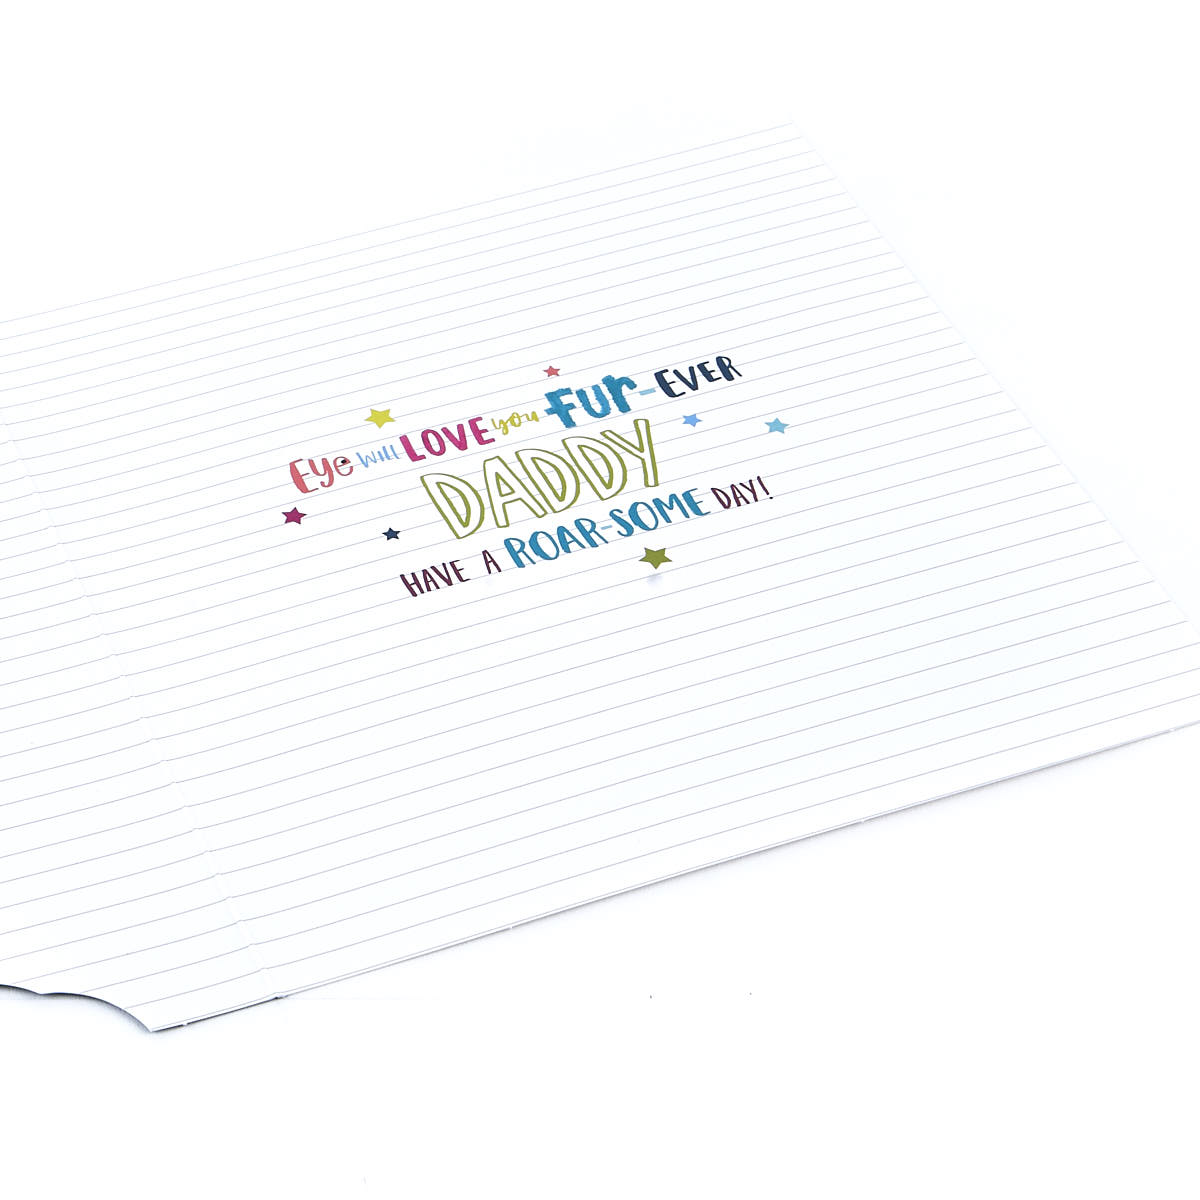 Eye WILL LOVE you FUR-EVER
DADDY
HAVE A ROAR-SOME DAY!